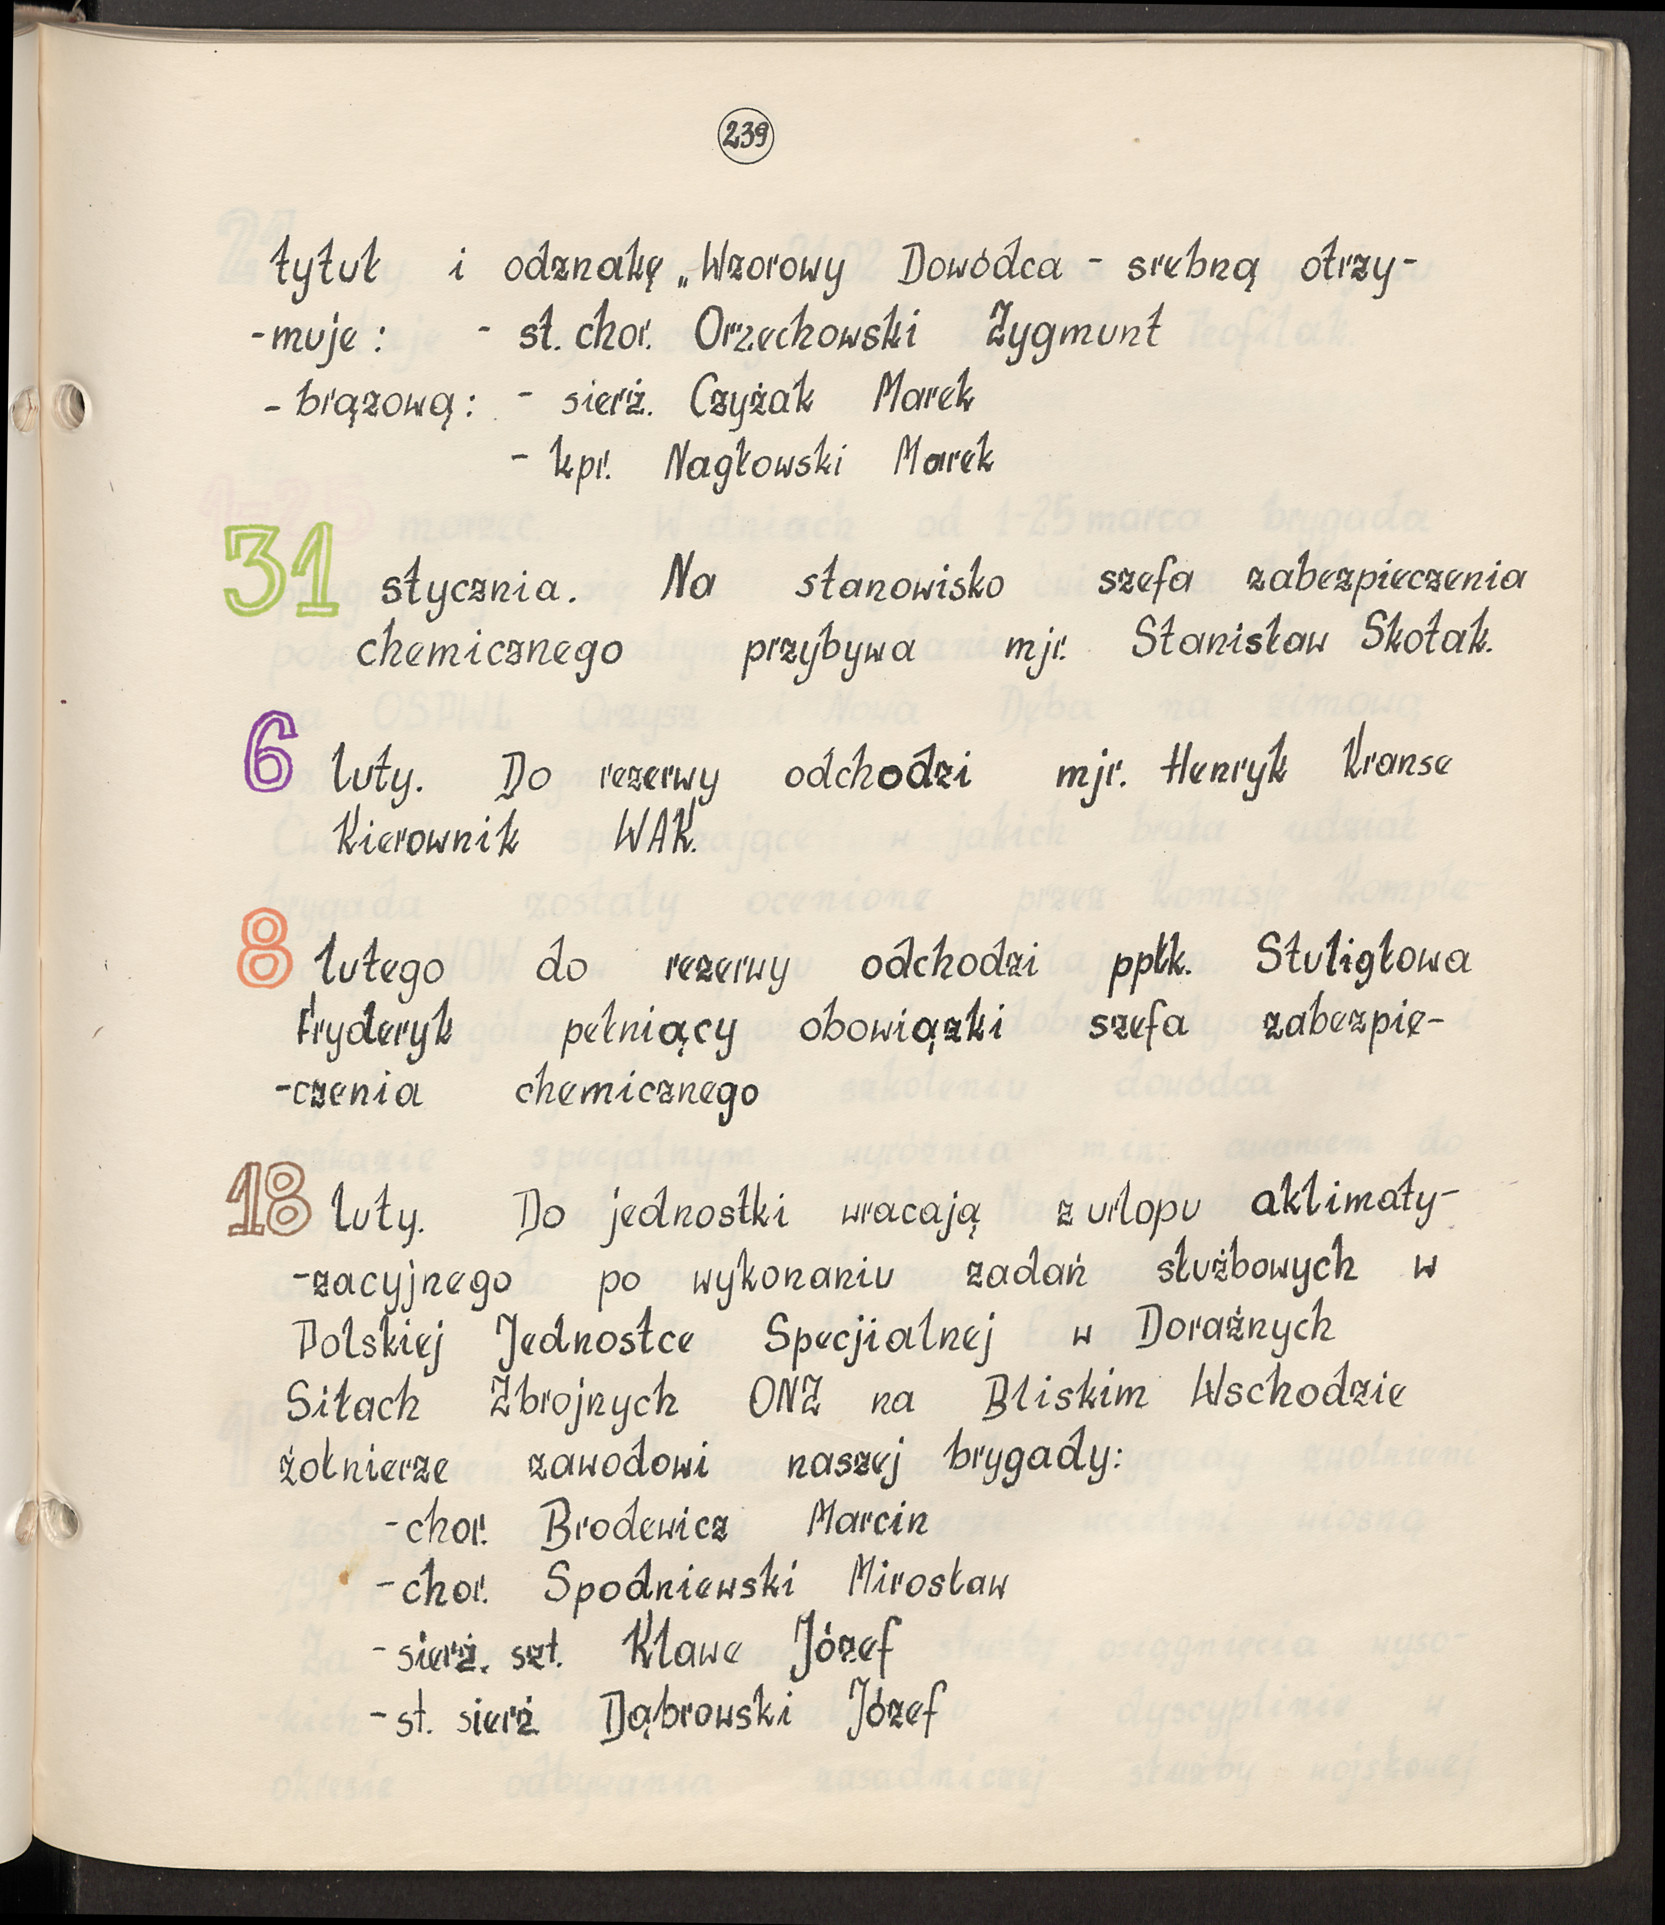 239
tytuł i odznakę „Wzorowy Dowódca - srebną otrzy-
-muje: - st. chor. Orzechowski Zygmunt
- brązową: - sierż. Czyżak Marek
- kpr. Nagłowski Marek
31 stycznia. Na stanowisko szefa zabezpieczenia
chemicznego przybywa mjr. Stanisław Skotak.
6 luty. Do rezerwy odchodzi mjr. Henryk Kranse
Kierownik WAK.
8 lutego do rezerwy odchodzi ppłk. Stuligłowa
Fryderyk pełniący obowiązki szefa zabezpie-
-czenia chemicznego
18 luty. Do jednostki wracają z urlopu aklimaty-
-zacyjnego po wykonaniu zadań służbowych w
Polskiej Jednostce Specjialnej w Doraźnych
Siłach Zbrojnych ONZ na Bliskim Wschodzie
żołnierze zawodowi naszej brygady:
- chor. Brodewicz Marcin
- chor. Spodniewski Mirosław
- sierż. szt. Klawe Józef
- st. sierż Dąbrowski Józef